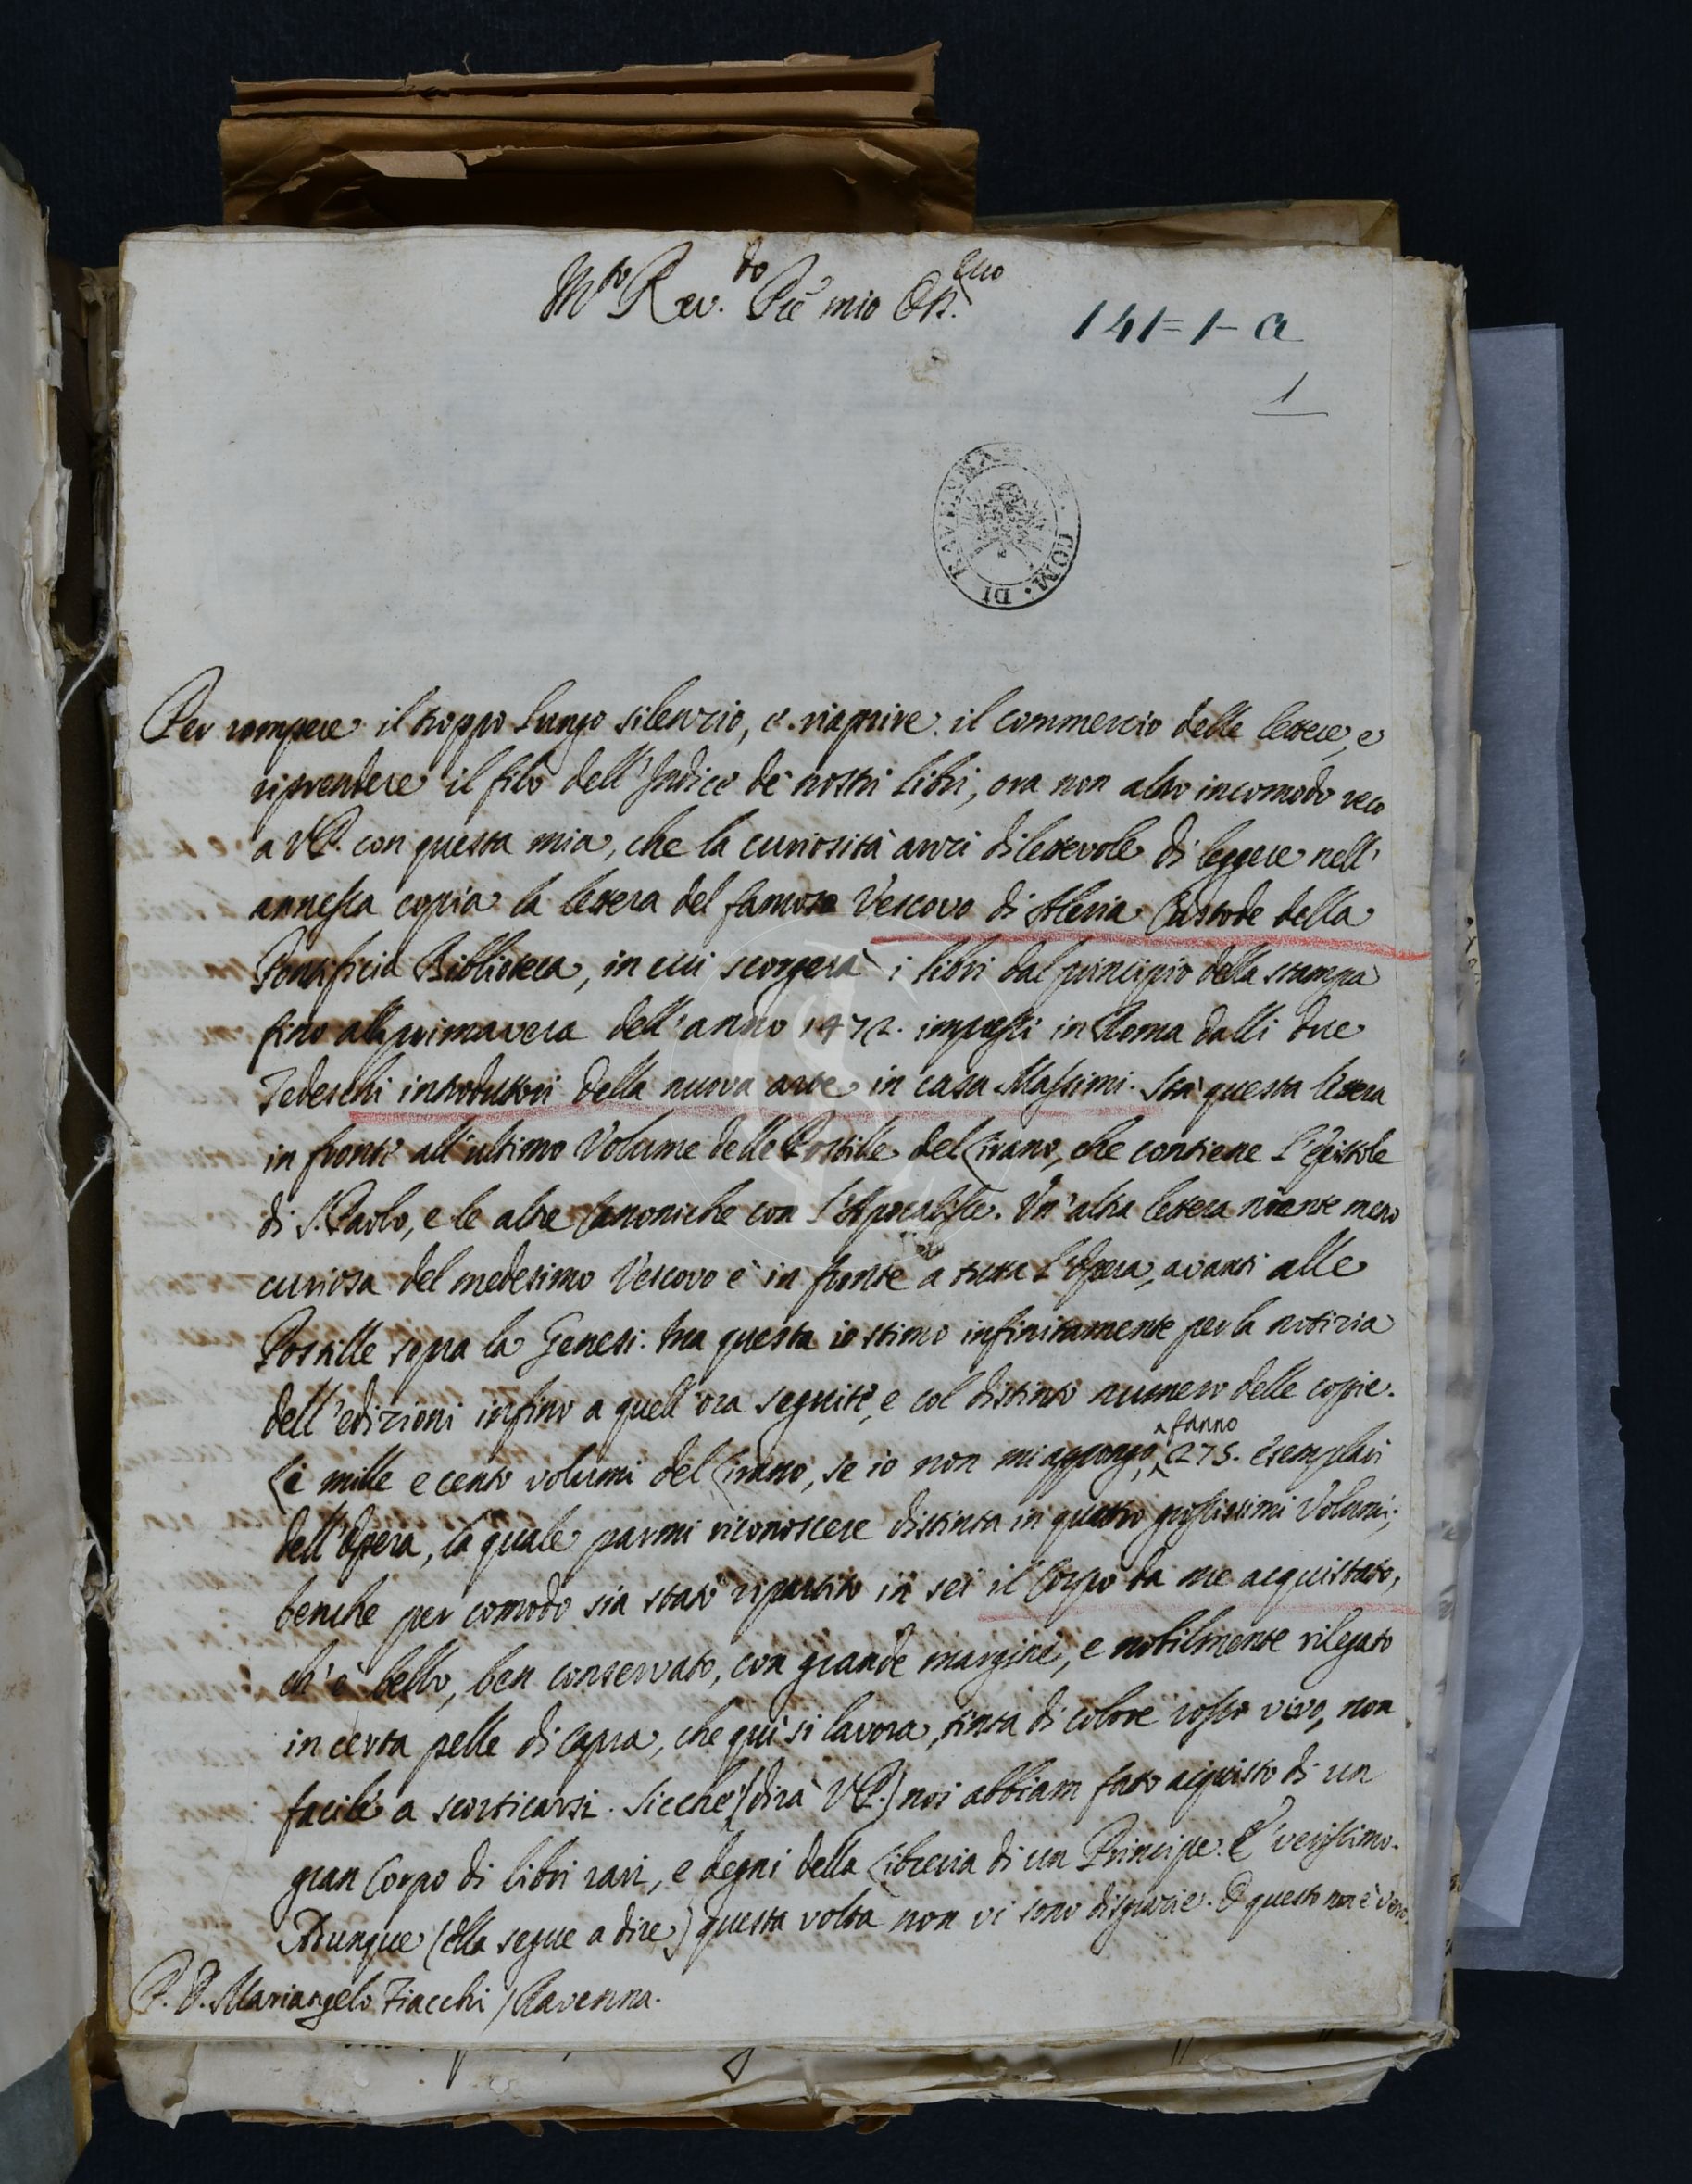 M.to Rev.do P.re mio Oss.mo
141=1-a
1
COM. DI RAVENNA
Per rompere il troppo lungo silenzio, e riaprire il commercio delle lettere, e
riprendere il filo dell'Indice de nostri libri, ora non altro incomodo reco
a V.P. con questa mia, che la curiosità anzi dilettevole di leggere nell'
annessa copia la lettera del famoso Vescovo di Aleria Custode della
Pontificia Biblioteca, in cui scorgerà i libri dal principio della stampa
fino alla primavera dell'anno 1472. impressi in Roma dalli due
Tedeschi introduttori della nuova arte in casa Massimi. Sta questa lettera
in fronte all'ultimo Volume delle Postille del Lirano, che contiene l'Epistole
di S. Paolo, e le altre Canoniche con l'Apocalisse. Un'altra lettera niente meno
curiosa del medesimo Vescovo è in fronte a tutta l'Opera, avanti alle
Postille sopra la Genesi: ma questa io stimo infinitamente per la notizia
dell'edizioni infino a quell'ora seguite, e col distinto numero delle copie.
Li mille e cento volumi del Lirano, se io non mi appongo, fanno 275. esemplari
dell'Opera, la quale parmi riconoscere distinta in quattro grossissimi Volumi;
benche per comodo sia stato ripartito in sei il Corpo da me acquistato,
ch'è bello, ben conservato, con grande margine, e nobilmente rilegato
in certa pelle di capra, che quì si lavora, tinta di colore rosso vivo, non
facile a scorticarsi. Sicche (dirà V.P.) noi abbiam fatto acquisto di un
gran Corpo di libri rari, e degni della Libreria di un Principe. E' verissimo.
Adunque (ella segue a dire) questa volta non vi sono disgrazie. E questo non è vero.
P. D. Mariangelo Fiacchi / Ravenna.